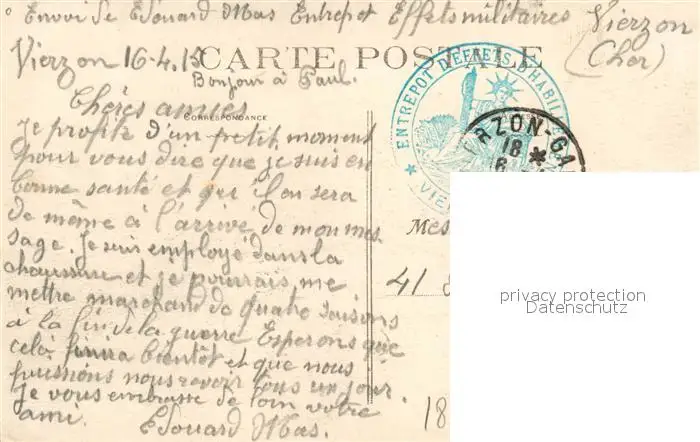 Envoi de Edouard Mas Entrepot Effets militaires Vierzon
(Cher)
Vierzon 16-4.15
CARTE POSTALE
Bonjour à Paul.
Chères amies
CORRESPONDANCE
Je profite d'un petit moment
pour vous dire que je suis en
bonne santé et qu'il en sera
de même à l'arrivé de mon mes
sage. Je suis employé dans la
chaussure et je pourrais me
mettre marchand de quatre saisons
à la fin de la guerre Esperons que
celà finira bientôt et que nous
puissions nous revoir tous un jour.
Je vous embrasse de loin votre
ami. Edouard Mas.
ENTREPOT D'EFFETS D'HABIL
VIE
RZON-GA
18
6
Mes
41
18
privacy protection
Datenschutz